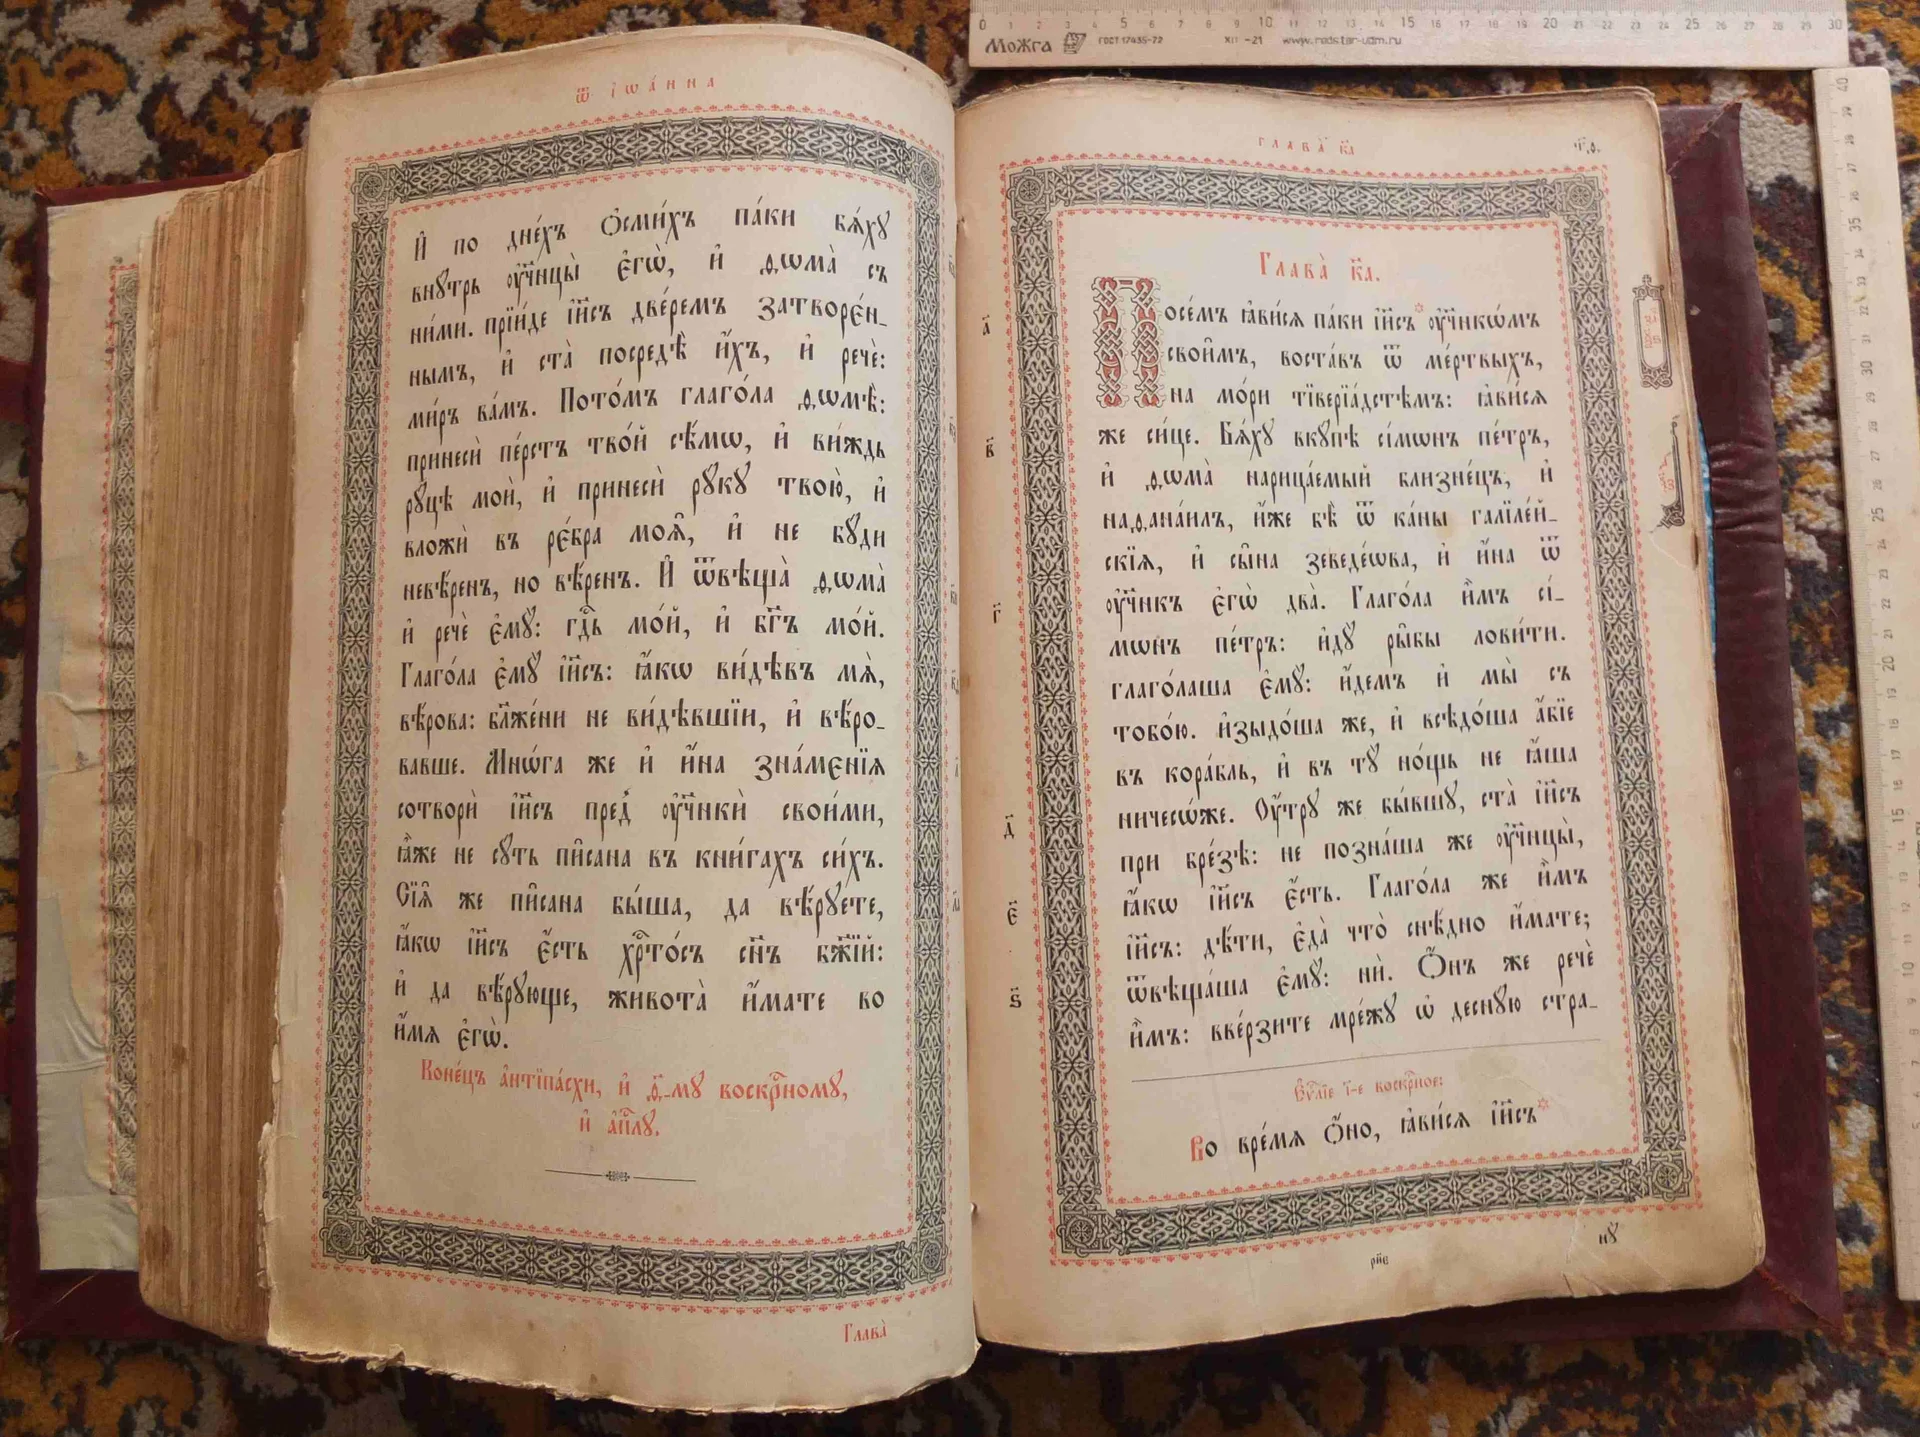 ѿ і҆ѡа́нна
И҆ по дне́хъ ѻ҆сми́хъ па́ки бѧ́хꙋ
внꙋ́трь ᲂу҆ч҃нцы̀ є҆гѡ̀, и҆ ѳѡма̀ съ
ни́ми. прїи́де і҆и҃съ две́ремъ затворє́н-
нымъ, и҆ ста̀ посредѣ̀ и҆́хъ, и҆ речѐ:
ми́ръ ва́мъ. Пото́мъ глаго́ла ѳѡмѣ̀:
принесѝ пе́рстъ тво́й сѣ́мѡ, и҆ ви́ждь
рꙋ́цѣ моѝ, и҆ принесѝ рꙋ́кꙋ твою̀, и҆
вложѝ въ рє́бра моѧ̑, и҆ не бꙋ́ди
невѣ́ренъ, но вѣ́ренъ. И҆ ѿвѣща̀ ѳѡма̀
и҆ речѐ є҆мꙋ̀: гд҇ь мо́й, и҆ бг҃ъ мо́й.
Глаго́ла є҆мꙋ̀ і҆и҃съ: ꙗ҆́кѡ ви́дѣвъ мѧ̀,
вѣ́рова: бл҃же́ни не ви́дѣвшїи, и҆ вѣ́ро-
вавше. Мнѡ́га же и҆ и҆́на зна́мєнїѧ
сотворѝ і҆и҃съ пред̾ ᲂу҆ч҃нкѝ свои́ми,
ꙗ҆̀же не сꙋ́ть пи̑сана въ кни́гахъ си́хъ.
Сїѧ̑ же пи̑сана бы́ша, да вѣ́рꙋете,
ꙗ҆́кѡ і҆и҃съ є҆́сть хрⷭ҇то́съ сн҃ъ бж҃їй:
и҆ да вѣ́рꙋюще, живота̀ и҆́мате во
и҆́мѧ є҆гѡ̀.
Коне́цъ а҆нтїпа́схи, и҆ ѳ҃-мꙋ воскрⷭ҇номꙋ,
и҆ а҆пⷭ҇лꙋ.
Глава̀
глава̀ к҃а
Глава̀ к҃а.
Посе́мъ ꙗ҆ви́сѧ па́ки і҆и҃съ* ᲂу҆ч҃нкѡ́мъ
свои̑мъ, воста́въ ѿ ме́ртвыхъ,
на мо́ри тїверїа́дстѣмъ: ꙗ҆ви́сѧ
же си́це. Бѧ́хꙋ вкꙋ́пѣ сі́мѡнъ пе́тръ,
и҆ ѳѡма̀ нарица́емый близне́цъ, и҆
наѳана́илъ, и҆́же бѣ̀ ѿ ка́ны галїле́й-
скїѧ, и҆ сы̑на зеведе́ѡва, и҆ и҆́на ѿ
ᲂу҆ч҃нкъ є҆гѡ̀ два̀. Глаго́ла и҆̀мъ сі́-
мѡнъ пе́тръ: и҆дꙋ̀ ры̑бы лови́ти.
глаго́лаша є҆мꙋ̀: и҆́демъ и҆ мы̀ съ
тобо́ю. и҆зыдо́ша же, и҆ всѣдо́ша а҆́бїе
въ кора́бль, и҆ въ тꙋ̀ но́щь не ꙗ҆́ша
ничесѡ́же. Оу҆́трꙋ же бы́вшꙋ, ста̀ і҆и҃съ
при бре́зѣ: не позна́ша же ᲂу҆ч҃нцы̀,
ꙗ҆́кѡ і҆и҃съ є҆́сть. Глаго́ла же и҆̀мъ
і҆и҃съ: дѣ́ти, є҆да̀ что̀ снѣ́дно и҆́мате;
ѿвѣща́ша є҆мꙋ̀: нѝ. Ѻ҆́нъ же речѐ
и҆̀мъ: вве́рзите мре́жꙋ ѡ҆ деснꙋ́ю стра-
Еѵⷢ҇лїе і҃-е воскрⷭ҇ное:
Во вре́мѧ ѻ҆́но, ꙗ҆ви́сѧ і҆и҃съ*
нꙋ
рн҃в
а҃
в҃
г҃
д҃
є҃
ѕ҃
0 1 2 3 4 5 6 7 8 9 10 11 12 13 14 15 16 17 18 19 20 21 22 23 24 25 26 27 28 29 30
Можга ГОСТ 17435-72 XII -21 www.redstar-udm.ru